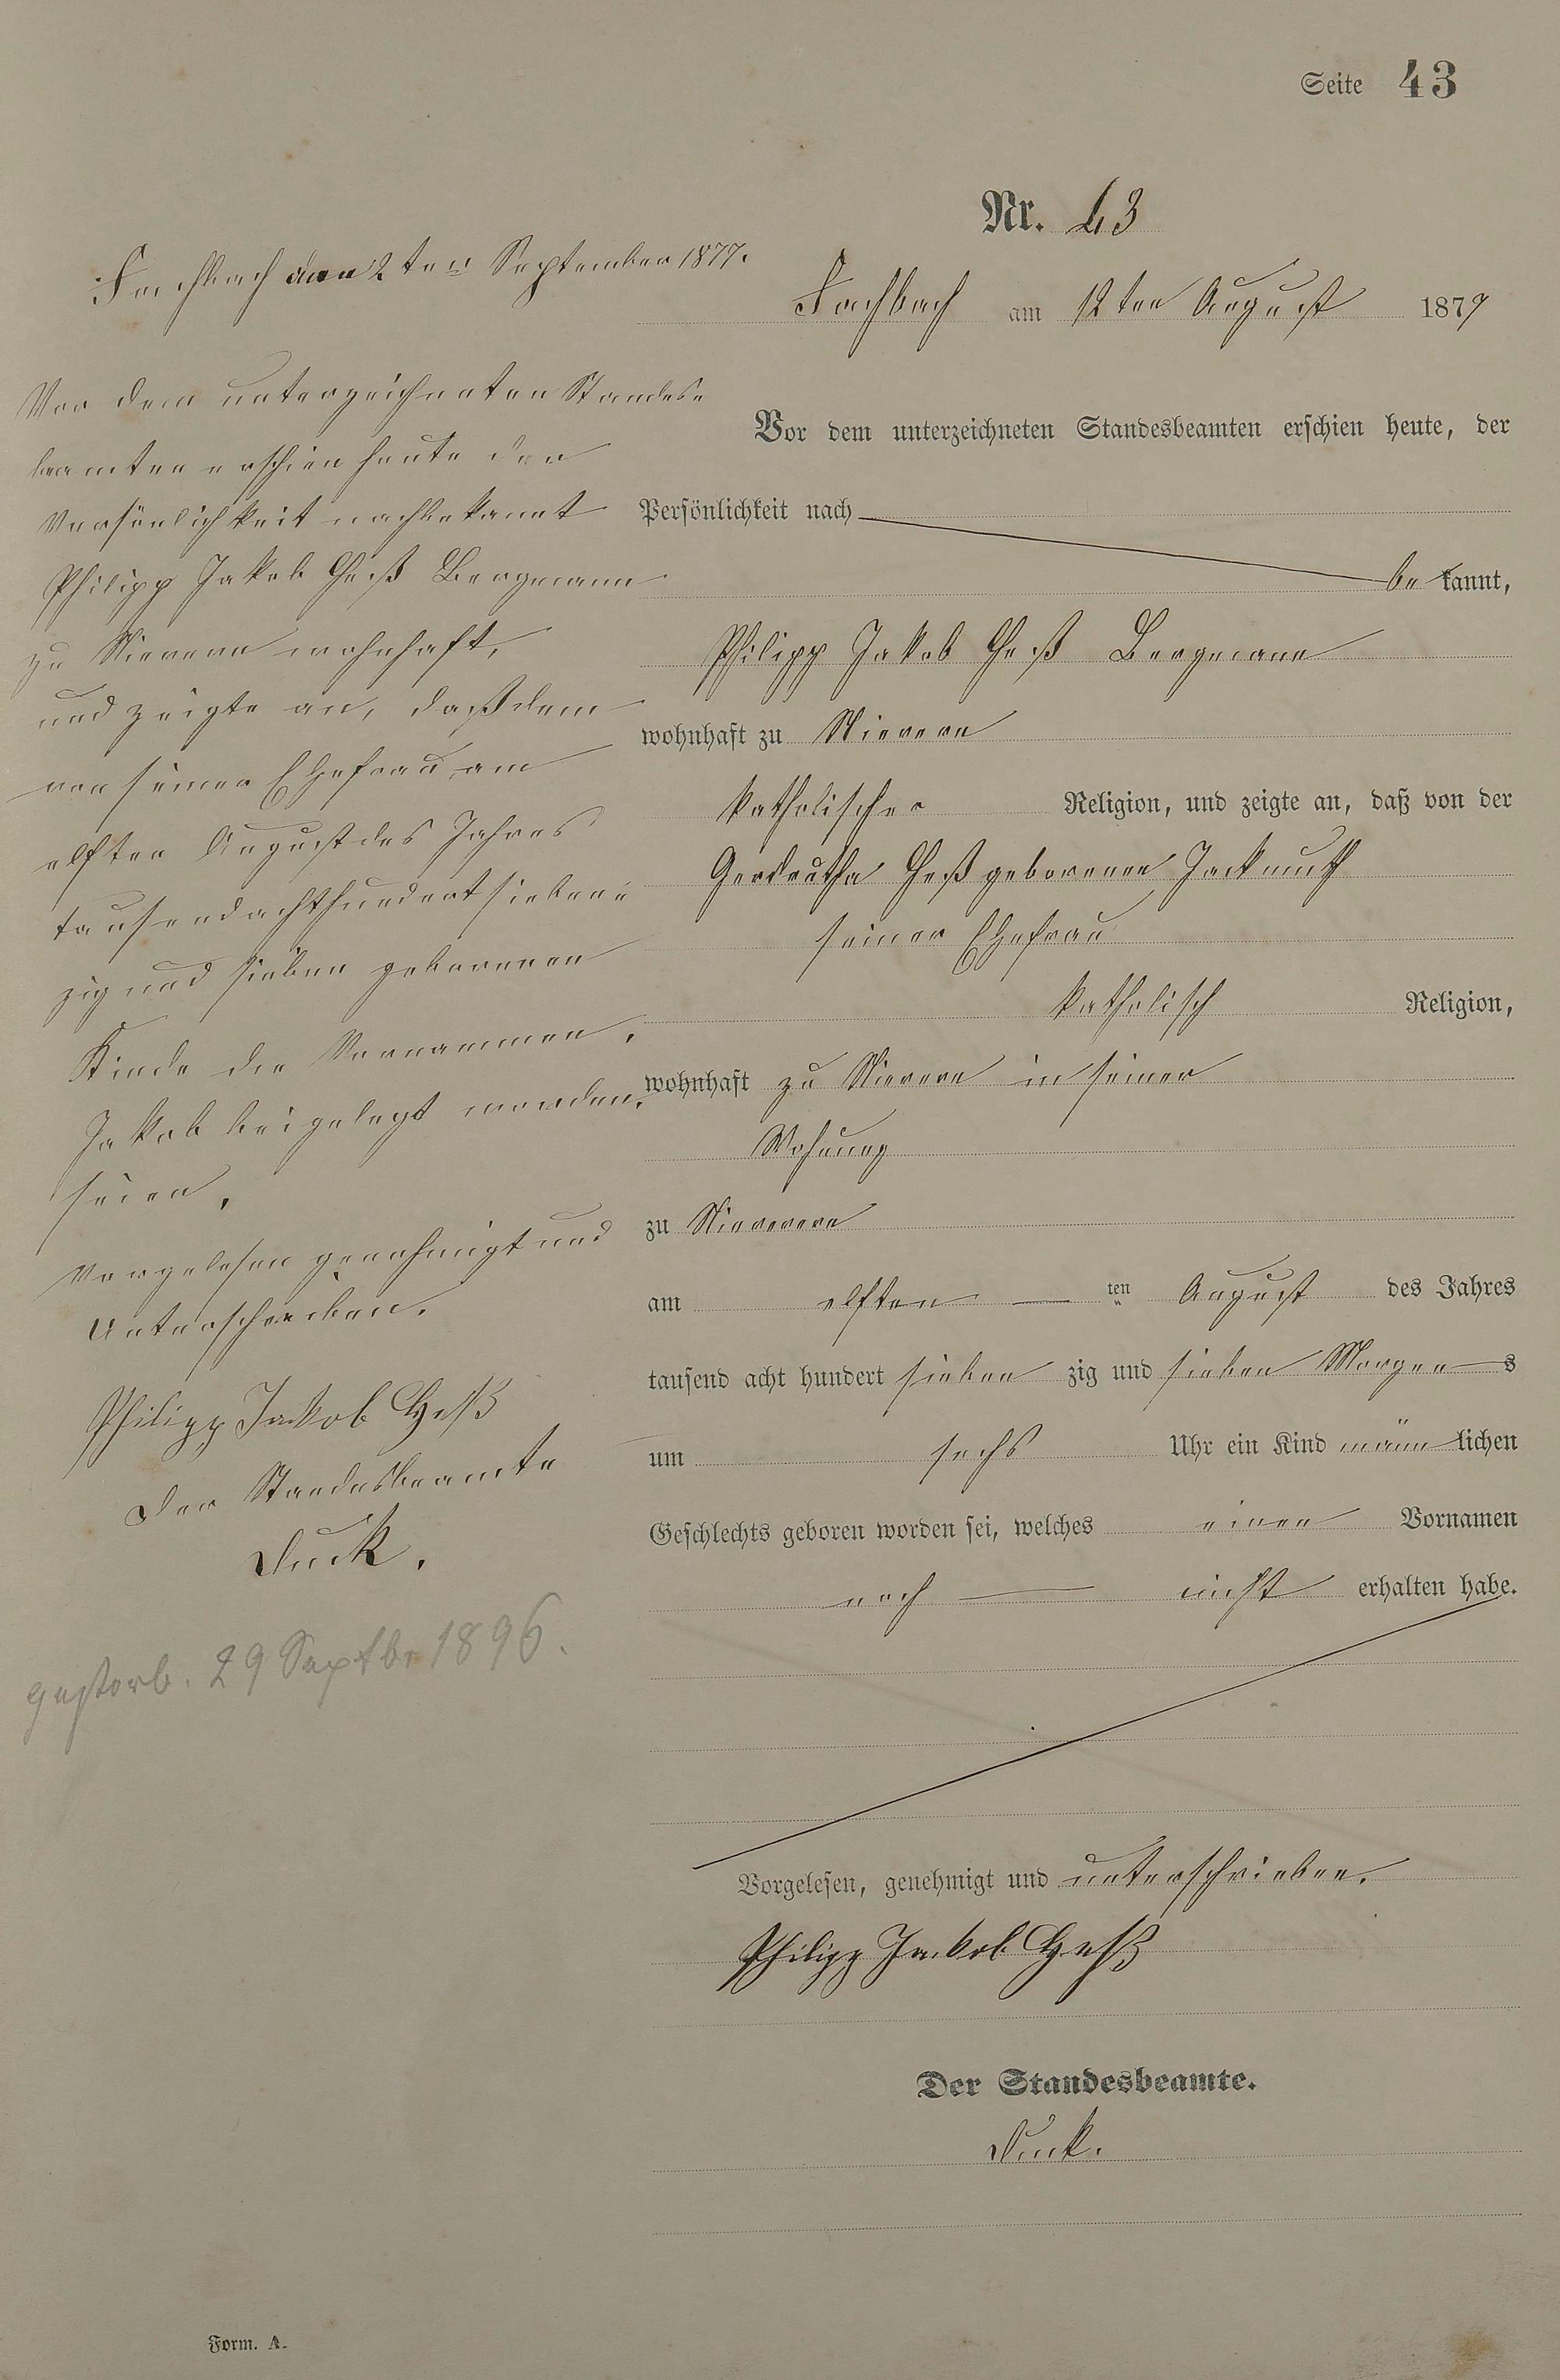 Seite 43
Nr. 43
Fachbach am 12ten August 1877
Vor dem unterzeichneten Standesbeamten erschien heute, der
Persönlichkeit nach
be kannt,
Philipp Jakob Heß Bergmann
wohnhaft zu Nievern
katholischer Religion, und zeigte an, daß von der
Gerdrutha Heß geborenen Jackmuth
seiner Ehefrau
katholisch Religion,
wohnhaft zu Nievern in seiner
Wohnung
zu Nievern
am elften ten August des Jahres
tausend acht hundert sieben zig und sieben Morgen s
um sechs Uhr ein Kind männ lichen
Geschlechts geboren worden sei, welches einen Vornamen
noch nicht erhalten habe.
Vorgelesen, genehmigt und unterschrieben.
Philipp Jakob Heß
Der Standesbeamte.
Duck.
Fachbach den 2ten September 1877.
Vor dem unterzeichneten Standes-
beamten erschien heute der
Persönlichkeit nach bekannt
Philipp Jakob Heß Bergmann
zu Nievern wohnhaft,
und zeigte an, daß dem
von seiner Ehefrau am
elften August des Jahres
tausend achthundert sieben-
zig und sieben geborenen
Kinde die Vornammen,
Jakob beigelegt worden
seien.
Vorgelesen genehmigt und
Unterschrieben.
Philipp Jakob Heß
Der Standesbeamte
Duck.
gestorb. 29 Septbr 1896.
Form. A.